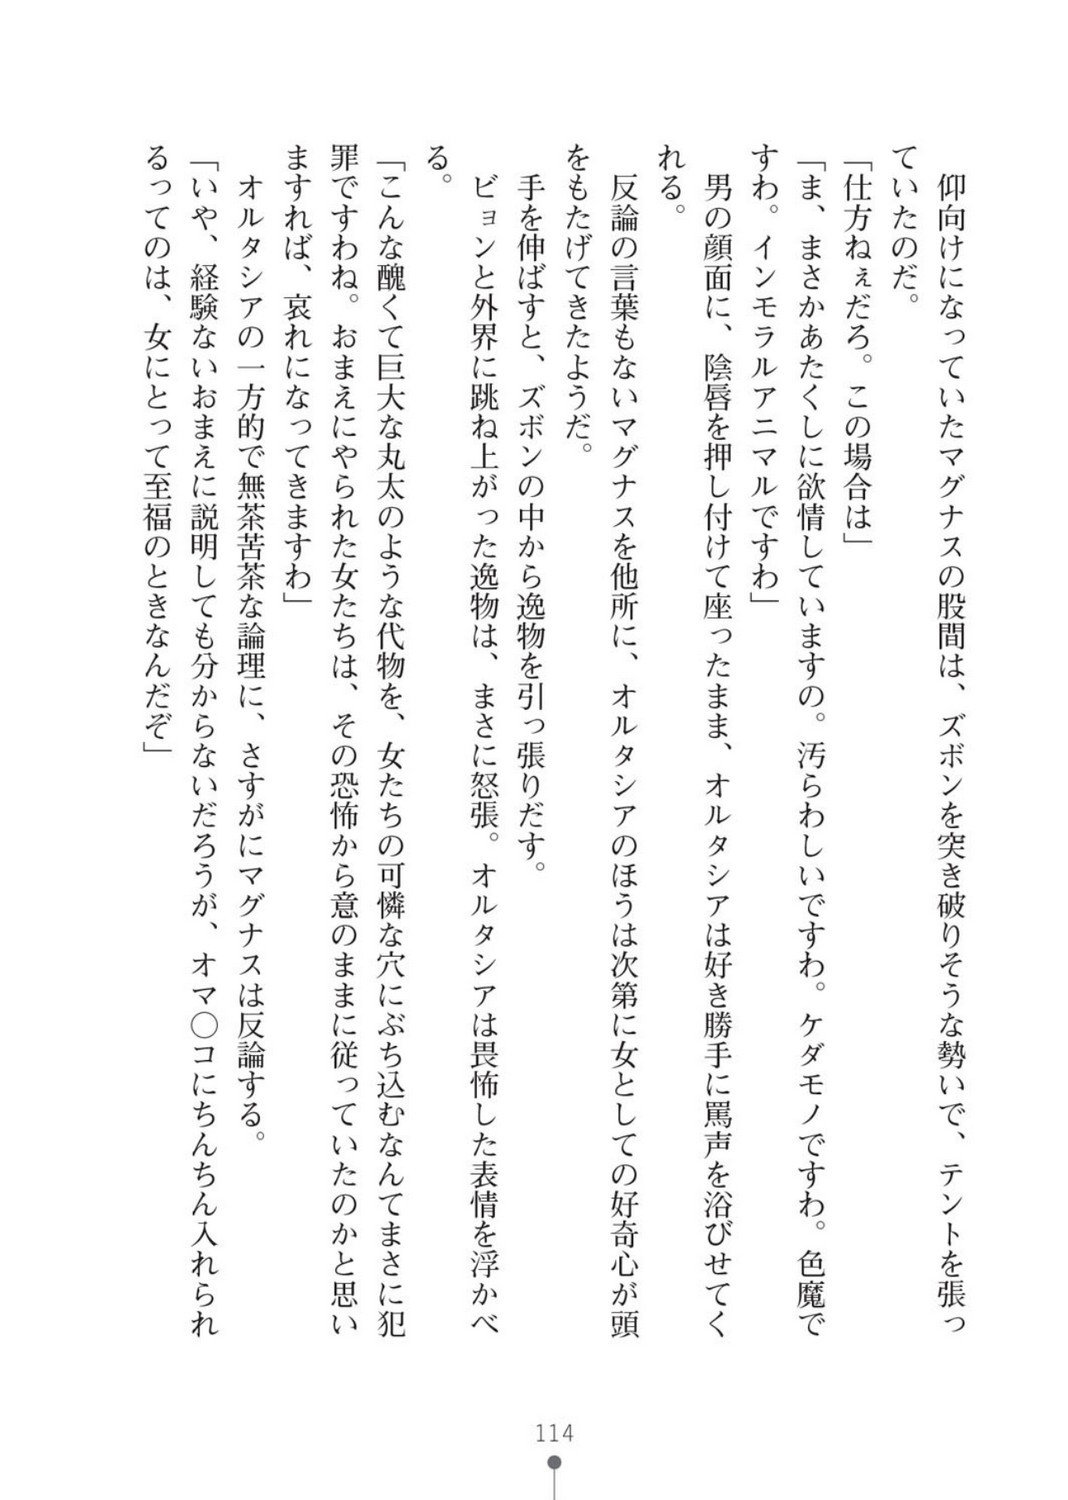 仰向けになっていたマグナスの股間は、ズボンを突き破りそうな勢いで、テントを張っ
ていたのだ。
「仕方ねぇだろ。この場合は」
「ま、まさかあたくしに欲情していますの。汚らわしいですわ。ケダモノですわ。色魔で
すわ。インモラルアニマルですわ」
　男の顔面に、陰唇を押し付けて座ったまま、オルタシアは好き勝手に罵声を浴びせてく
れる。
　反論の言葉もないマグナスを他所に、オルタシアのほうは次第に女としての好奇心が頭
をもたげてきたようだ。
　手を伸ばすと、ズボンの中から逸物を引っ張りだす。
　ビョンと外界に跳ね上がった逸物は、まさに怒張。オルタシアは畏怖した表情を浮かべ
る。
「こんな醜くて巨大な丸太のような代物を、女たちの可憐な穴にぶち込むなんてまさに犯
罪ですわね。おまえにやられた女たちは、その恐怖から意のままに従っていたのかと思い
ますれば、哀れになってきますわ」
　オルタシアの一方的で無茶苦茶な論理に、さすがにマグナスは反論する。
「いや、経験ないおまえに説明しても分からないだろうが、オマ〇コにちんちん入れられ
るってのは、女にとって至福のときなんだぞ」
114